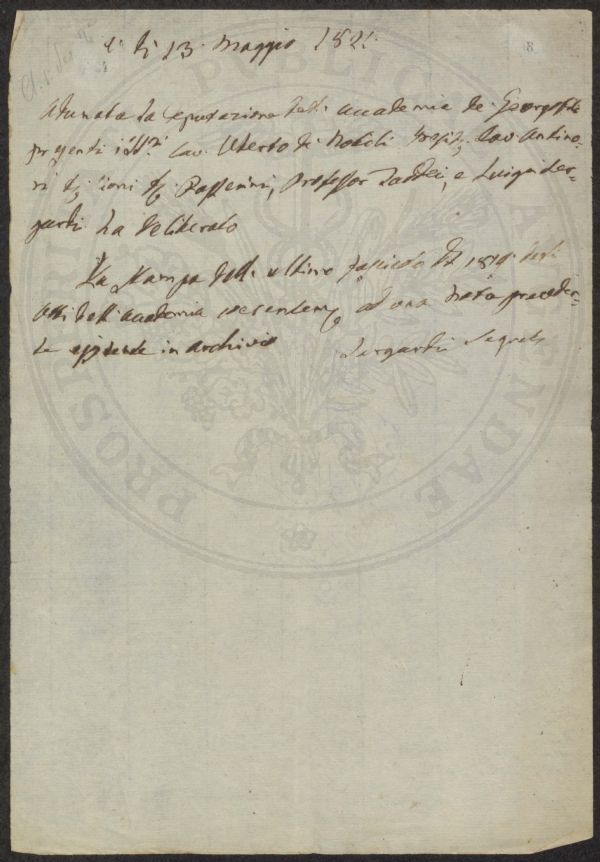 a di 13. Maggio 1821.
81
Adunata la Deputazione dell' Accademia de Georgofili
presenti i Sigg.ri Cav. Uberto de Nobili Presid.e Cav. Antino-
ri D.r D.r Passerini, Professor Taddei, e Luigi Ser-
gardi ha deliberato
La stampa dell' ultimo fascicolo del 1819. degli
Atti dell' Accademia ad una nota preceden-
te esistente in archivio
Sergardi Segret.
PROSPERITATI PUBLICAE AUGENDAE